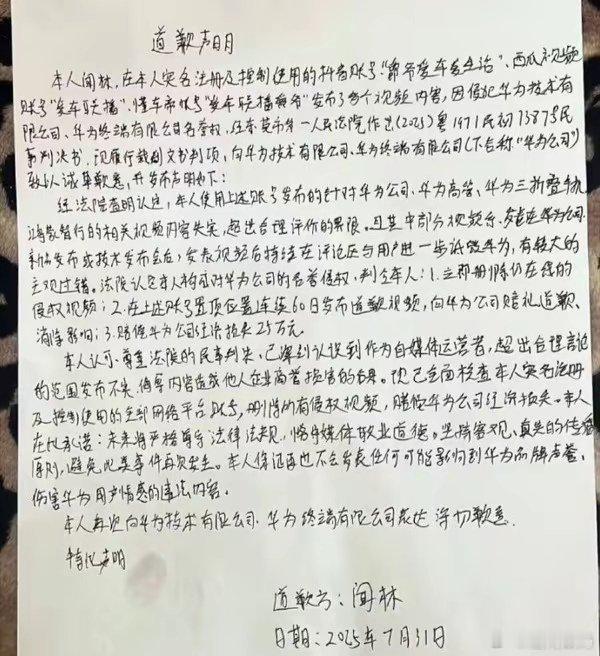 道歉声明
本人闻林,在本人实名注册及控制使用的抖音账号“常希爱车爱生活”、西瓜视频
账号“爱车联播”、懂车帝账号“爱车联播 ”发布了多个视频内容,因侵犯华为技术有
限公司、华为终端有限公司名誉权,经东莞市第一人民法院作出(2025)粤1971民初13879号民
事判决书。现履行裁判文书判项,向华为技术有限公司、华为终端有限公司(下合称“华为公司”)
致以诚挚歉意,并发布声明如下:
经法院查明认定,本人使用上述账号发布的针对华为公司、华为高管、华为三折叠手机、
鸿蒙智行的相关视频内容失实,超出合理评价的界限。且其中部分视频系 在华为公司
新品发布或技术发布会后,发表视频后持续在评论区与用户进一步诋毁华为,有较大的
主观过错。法院认定本人构成对华为公司的名誉侵权,判令本人:1.立即删除仍在线的
侵权视频;2.在上述账号置顶位置连续60日发布道歉视频,向华为公司赔礼道歉、
消除影响;3.赔偿华为公司经济损失25万元。
本人认可、尊重法院的民事判决,已深刻认识到作为自媒体运营者,超出合理言论
的范围发布不实、侮辱内容造成他人企业商誉损害的后果。现已全面核查本人实名注册
及控制使用的全部网络平台账号,删除所有侵权视频,赔偿华为公司经济损失。本人
在此承诺:未来将严格遵守法律法规,恪守媒体职业道德。坚持客观、真实的传播
原则,避免此类事件再次发生。本人保证再也不会发表任何可能影响到华为品牌声誉、
伤害华为用户情感的违法内容。
本人再次向华为技术有限公司、华为终端有限公司表达深切歉意.
特此声明
道歉方:闻林
日期:2025年7月31日